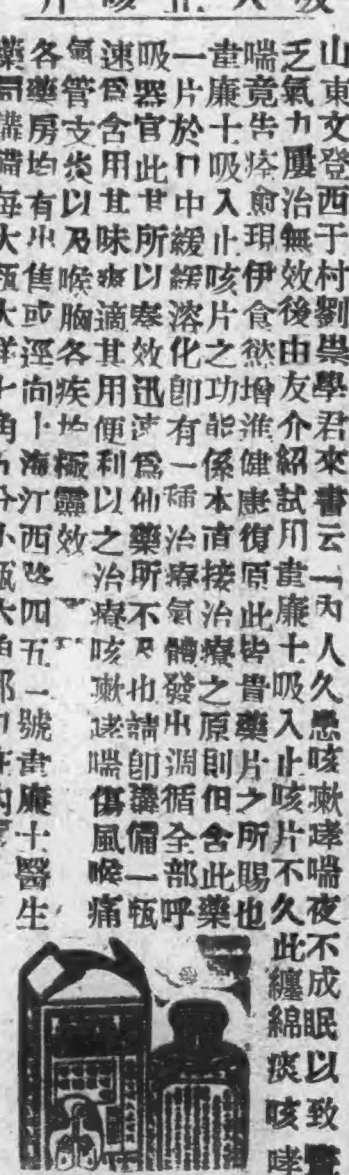 山東文登西于村劉崇學君來書云「內人久患咳嗽哮喘夜不成眠以致
乏氣力屢治無效後由友介紹試用韋廉士吸入止咳片不久此纏綿痰咳哮
喘竟告痊愈現伊食慾增進健康復原此皆貴藥片之所賜也
韋廉士吸入止咳片之功能係本直接治療之原則但含此藥
一片於口中緩緩溶化卽有一種治療氣體發出週循全部呼
吸器官此其所以奏效迅速爲仙藥所不及也請卽購備一瓶
速爲含用其味爽適其用便利以之治療咳嗽哮喘傷風喉痛
氣管支炎以及喉胸各疾均極靈效
各藥房均有出售或逕向上海江西路四五一號韋廉士醫生
藥局購備每大瓶大洋七角五分小瓶大洋